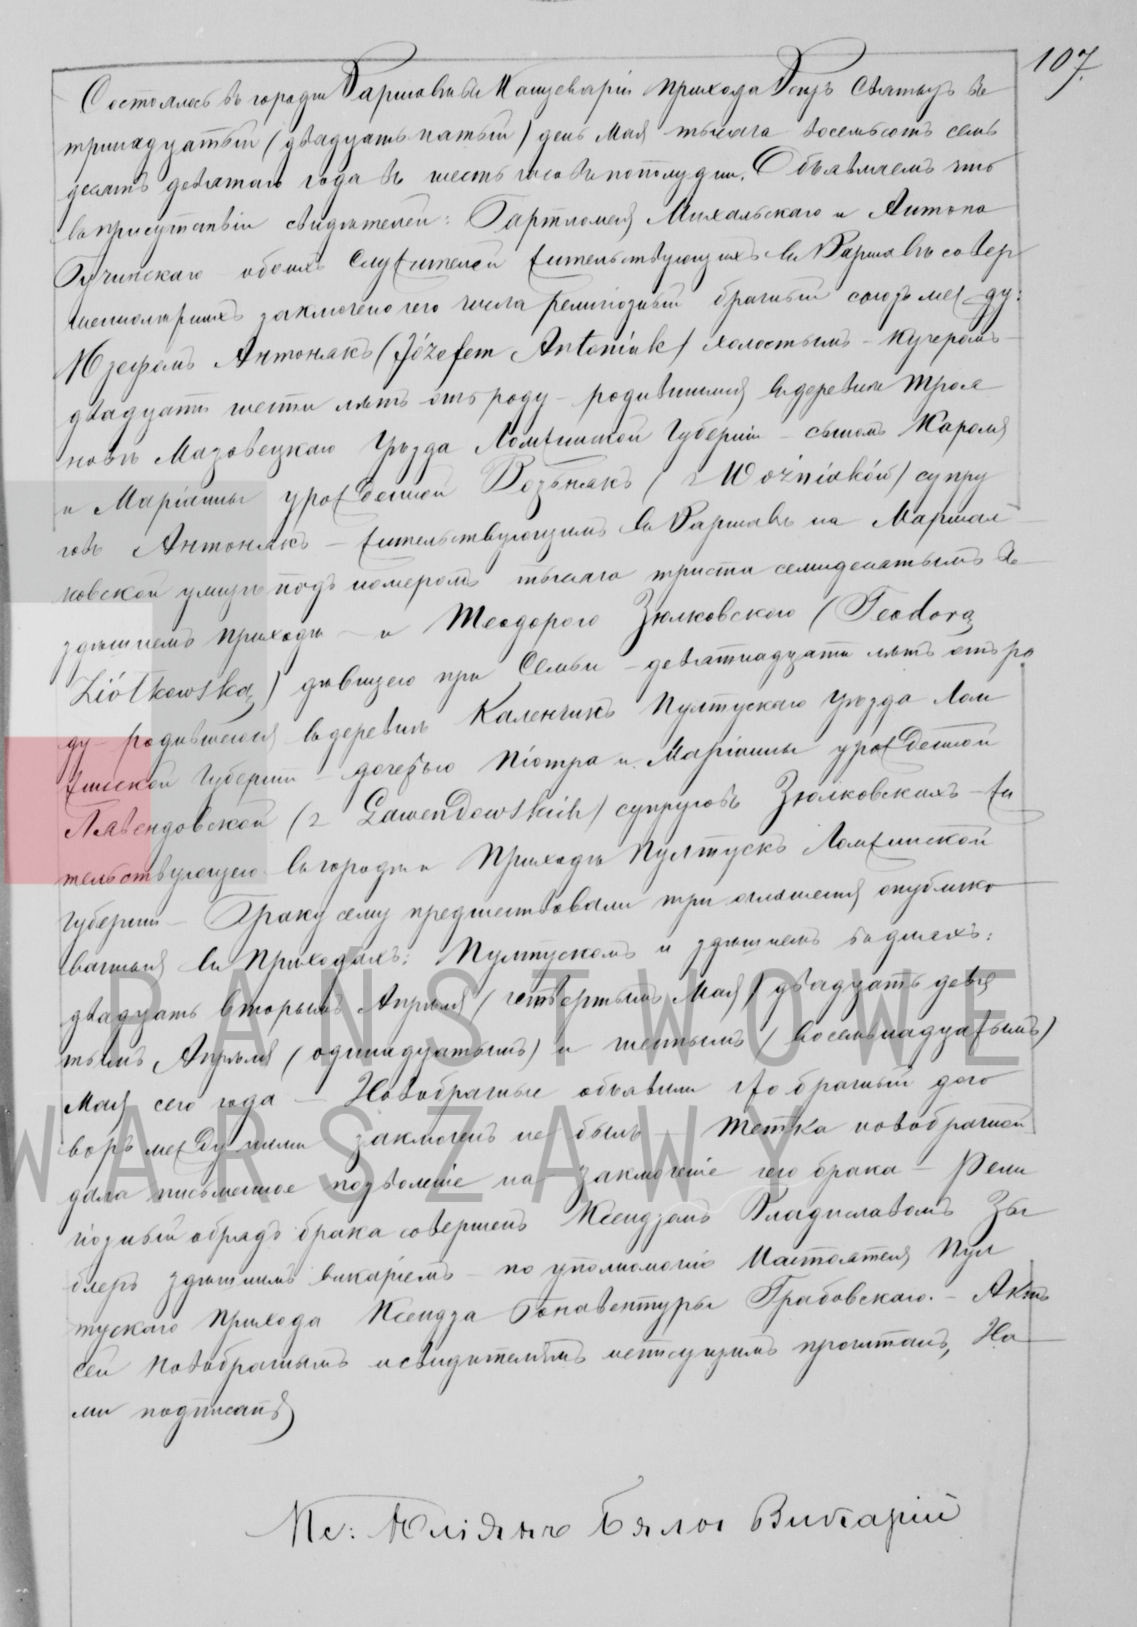 107.
Состоялось въ городѣ Варшавѣ въ Канцеляріи Прихода Всѣхъ Святыхъ въ
тринадцатый (двадцать пятый) день Мая тысяча восемьсотъ семь
десятъ девятаго года въ шесть часовъ пополудни. Объявляемъ что
въ присутствіи свидѣтелей: Бартломея Михальскаго и Антона
обоихъ служителей жительствующихъ въ Варшавѣ совер
шеннолѣтнихъ заключено сего числа религіозный брачный союзъ между:
Юзефомъ Антонякъ (Józefem Antoniak) холостымъ – кучеромъ –
двадцати шести лѣтъ отъ роду – родившимся въ деревнѣ Трося
новѣ Мазовецкаго Уѣзда Ломжинской Губерніи – сыномъ Кароля
и Маріанны урожденной Возьнякъ (z Woźniaków) супру
говъ Антонякъ – жительствующимъ въ Варшавѣ на Маршал
ковской улицѣ подъ номеромъ тысяча триста семидесятымъ въ
здѣшнемъ приходѣ – и Теодорою Зюлковскою (Teodorą
Ziółkowską) бывшею при Семьи – девятнадцати лѣтъ отъ ро
ду – родившеюся въ деревнѣ Каленчинъ Пултускаго Уѣзда Лом
жинской Губерніи – дочерью Піотра и Маріанны урожденной
Лавендовской (z Lawendowskich) супруговъ Зюлковскихъ – жи
тельствующею въ городѣ и Приходѣ Пултускъ Ломжинской
Губерніи – Браку сему предшествовали три оглашенія опублико
ванныя въ Приходахъ: Пултускомъ и здѣшнемъ въ дняхъ:
двадцать вторымъ Апрѣля (четвертымъ Мая) двадцать девя
тымъ Апрѣля (одинадцатымъ) и шестымъ (восемьнадцатымъ)
Мая сего года – Новобрачные объявили что брачный дого
воръ между ними заключенъ не былъ – Тетка новобрачной
дала письменное позволеніе на заключеніе сего брака – Рели
гіозный обрядъ брака совершенъ Ксендзомъ Владиславомъ Зы
блеръ здѣшнимъ викаріемъ – по уполномочію Настоятеля Пул
тускаго Прихода Ксендза Бонавентуры Грабовскаго. – Актъ
сей Новобрачнымъ и свидѣтелямъ неписущимъ прочитанъ, На
ми подписанъ
Кс: Юліянъ Бялы Викарій
PAŃSTWOWE
WARSZAWY